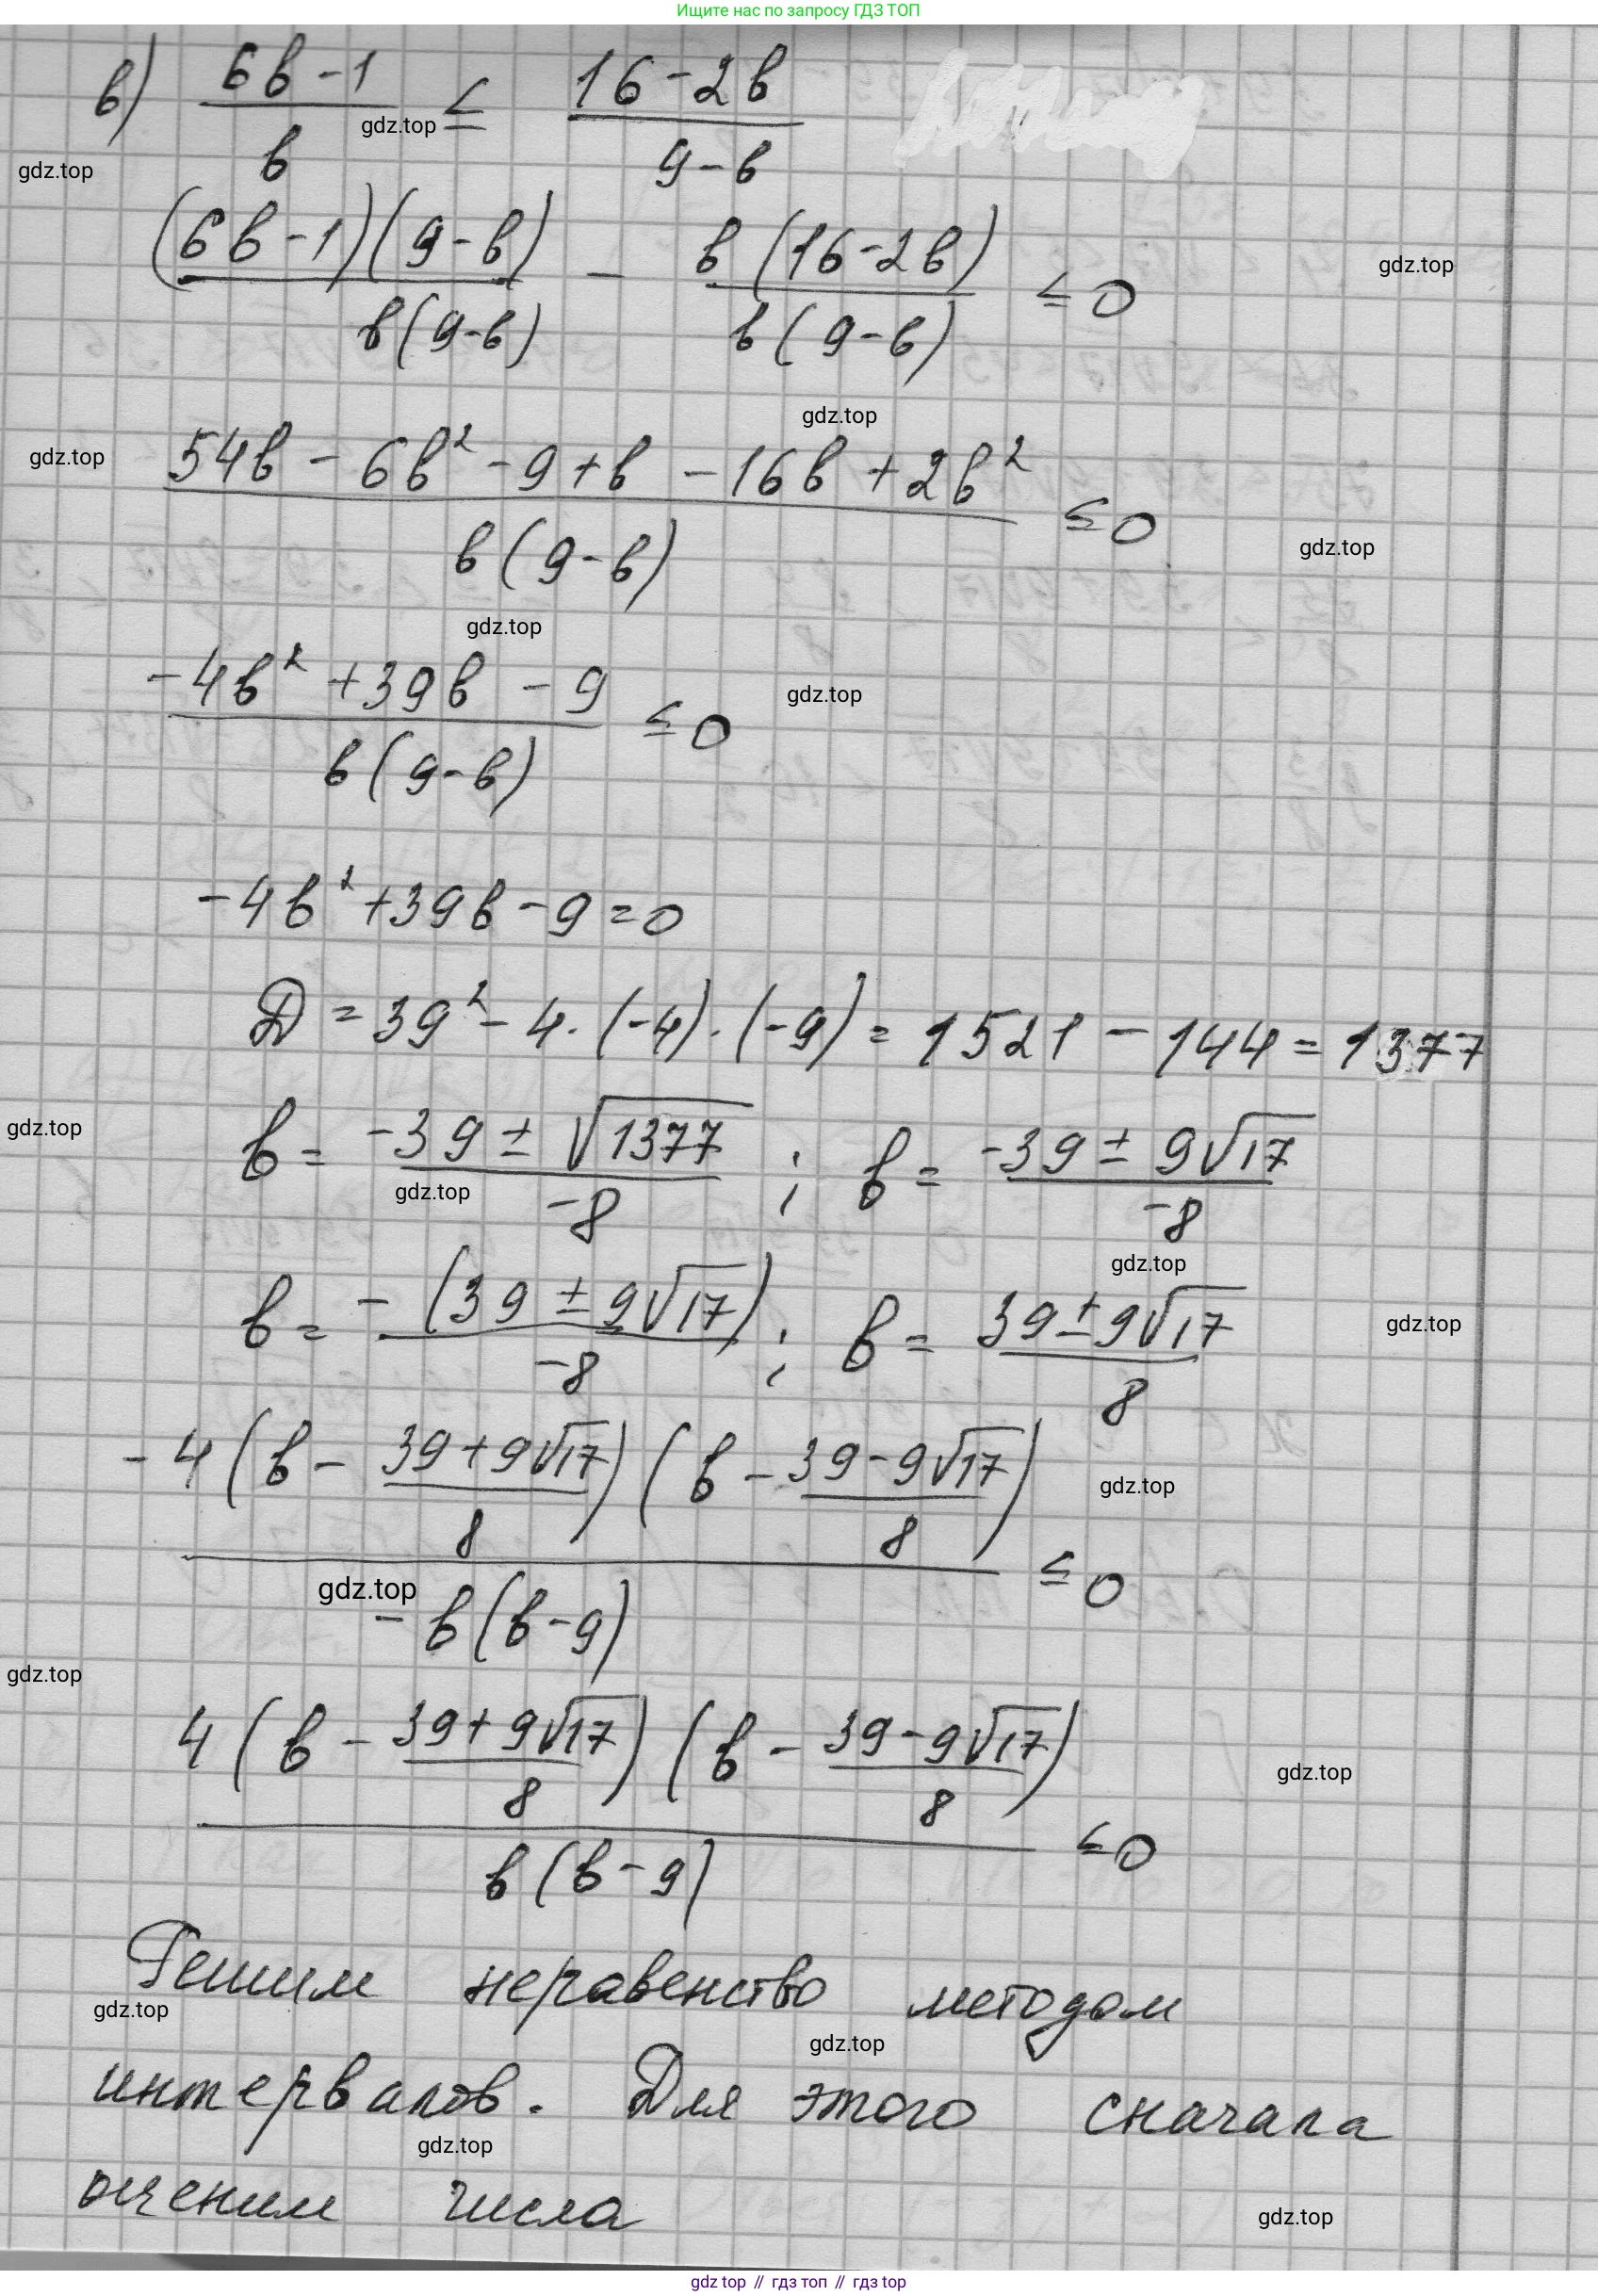 Ищите нас по запросу ГДЗ ТОП
в) (6в-1)/в ≤ (16-2в)/(9-в)
gdz.top
gdz.top
((6в-1)(9-в))/(в(9-в)) - (в(16-2в))/(в(9-в)) ≤ 0
gdz.top
gdz.top
gdz.top
(54в - 6в² - 9 + в - 16в + 2в²)/(в(9-в)) ≤ 0
gdz.top
gdz.top
(-4в² + 39в - 9)/(в(9-в)) ≤ 0
gdz.top
-4в² + 39в - 9 = 0
Д = 39² - 4·(-4)·(-9) = 1521 - 144 = 1377
gdz.top
в = (-39 ± √1377)/(-8) ; в = (-39 ± 9√17)/(-8)
gdz.top
gdz.top
в = -(39 ± 9√17)/(-8) ; в = (39 ± 9√17)/8
gdz.top
(-4(в - (39+9√17)/8)(в - (39-9√17)/8))/(-в(в-9)) ≤ 0
gdz.top
gdz.top
gdz.top
(4(в - (39+9√17)/8)(в - (39-9√17)/8))/(в(в-9)) ≤ 0
gdz.top
Решим неравенство методом
gdz.top
gdz.top
интервалов. Для этого сначала
gdz.top
оценим числа
gdz.top
gdz top // гдз топ // гдз top